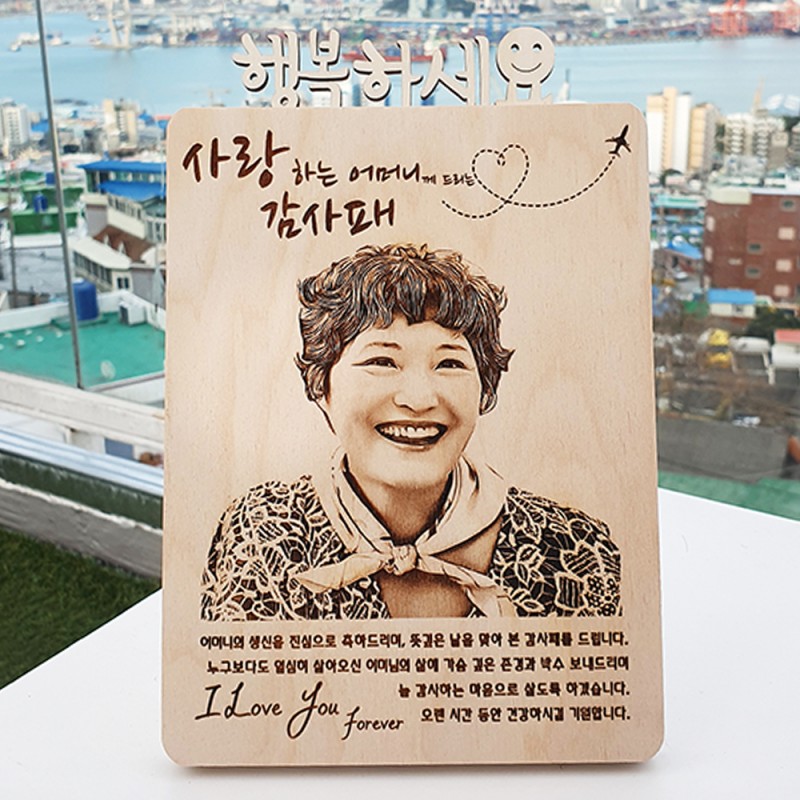 행복하세요
사랑하는 어머니께 드리는
감사패
어머니의 생신을 진심으로 축하드리며, 뜻깊은 날을 맞아 본 감사패를 드립니다.
누구보다도 열심히 살아오신 어머님의 삶에 가슴 깊은 존경과 박수 보내드리며
늘 감사하는 마음으로 살도록 하겠습니다.
I Love You Forever
오랜 시간 동안 건강하시길 기원합니다.